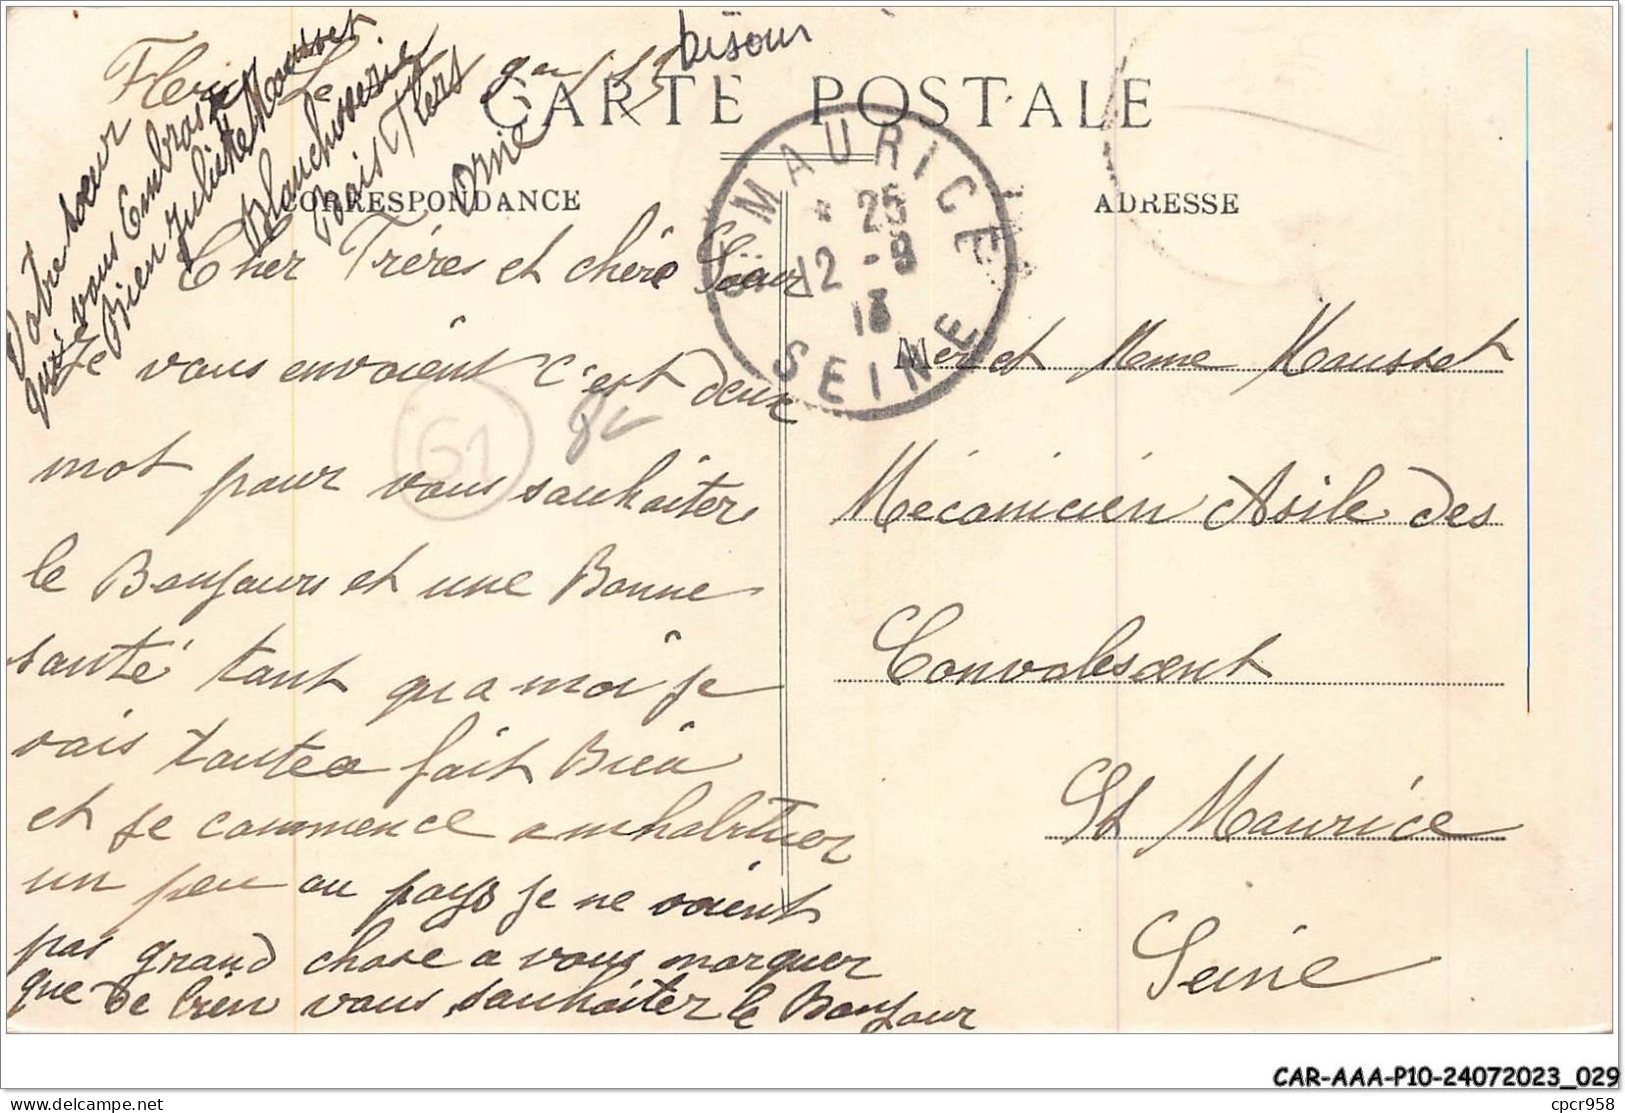 bijour
Flers Le
CARTE POSTALE
CORRESPONDANCE
ADRESSE
ST MAURICE
* 25
12 - 9
13
SEINE
Votre soeur
qui vous Embrasse
Bien Juliette Mousset
Blanchisserie
Bois Flers
Orne
Cher Frères et chère Soeur
Je vous envoient c'est deux
mot pour vous souhaiter
le Bonjours et une Bonne
santé tant qu a moi je
vais toutea fait Bien
et je commence a mhabituer
un peu au pays je ne voient
pas grand chose a vous marquer
que de bien vous souhaiter le Bonjour
61
Mer et Meme Mousset
Mécanicién Asile des
Convalescent
St Maurice
Seine
CAR-AAA-P10-24072023_029
cpcr958